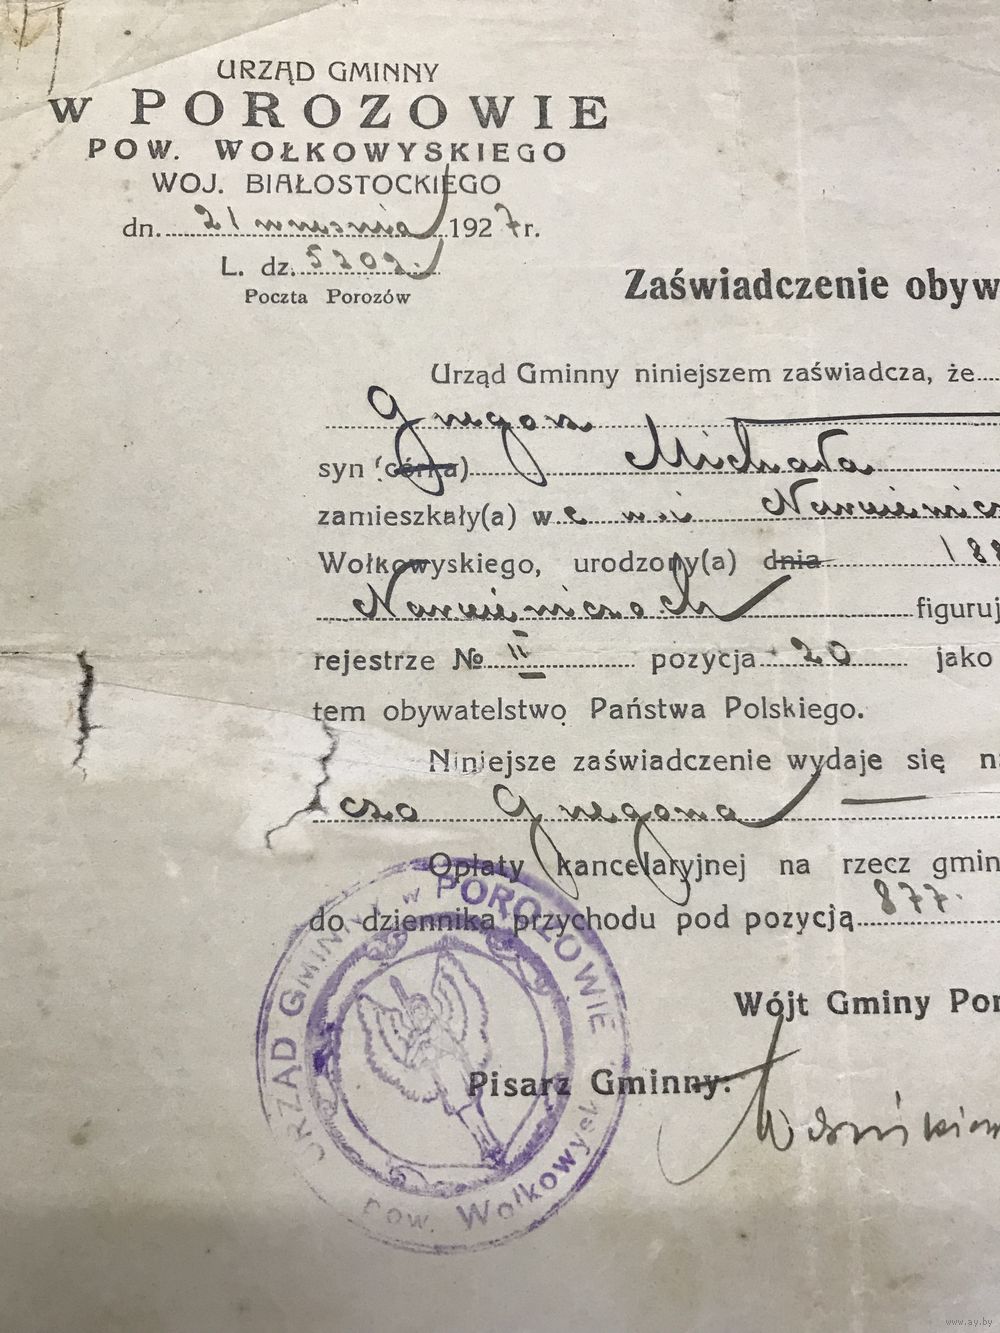 URZĄD GMINNY
w POROZOWIE
POW. WOŁKOWYSKIEGO
WOJ. BIAŁOSTOCKIEGO
dn. 21 września 1927 r.
L. dz. 5202.
Poczta Porozów
Zaświadczenie obyw
Urząd Gminny niniejszem zaświadcza, że
Gregorz
syn (córka) Michała
zamieszkały(a) w e wsi
Wołkowyskiego, urodzony(a) dnia 188
figuruj
rejestrze № II pozycja 20 jako
tem obywatelstwo Państwa Polskiego.
Niniejsze zaświadczenie wydaje się n
cza Gregorza
Opłaty kancelaryjnej na rzecz gmin
do dziennika przychodu pod pozycją 877.
Wójt Gminy Por
Pisarz Gminny:
URZĄD GMINNY w POROZOWIE
pow. Wołkowysk
www.ay.by